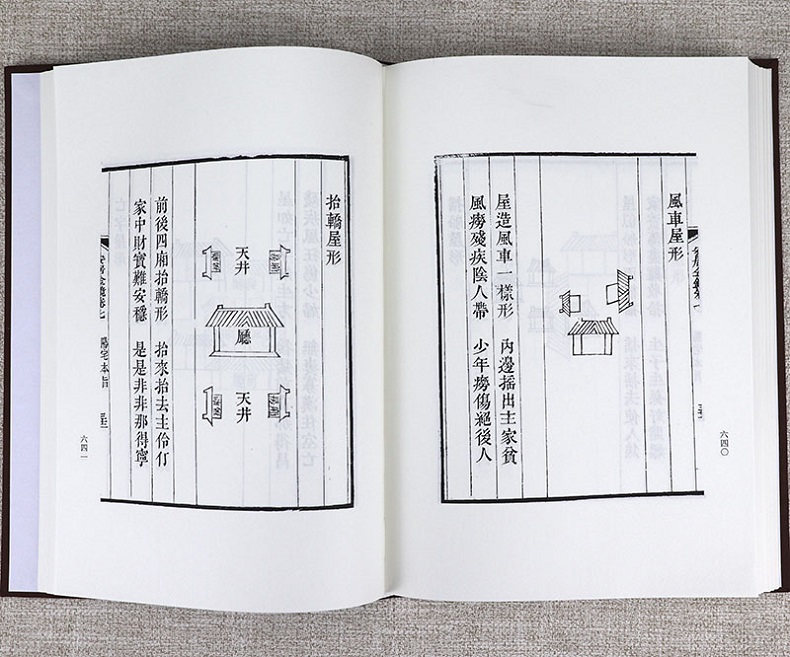 風車屋形
屋造風車一樣形　內邊搖出主家貧
風癆殘疾陰人帶　少年癆傷絕後人
六四〇
抬轎屋形
天井
廳
天井
前後四廂抬轎形　抬來抬去主伶仃
家中財寶難安穩　是是非非那得寧
陽宅本旨
六四一